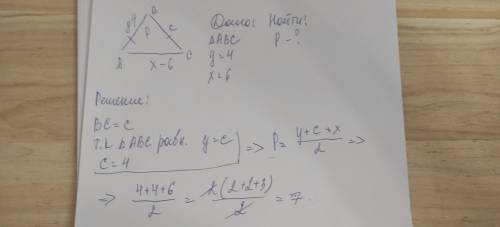 B
y 4
P
C
A
x - 6
C
Дано: Найти:
ΔABC P - ?
y = 4
x = 6
Решение:
BC = C
Т.к ΔABC равн. y = C
C = 4
=> P = (y + c + x)/2 =>
=> (4+4+6)/2 = 2(2+2+3)/2 = 7.